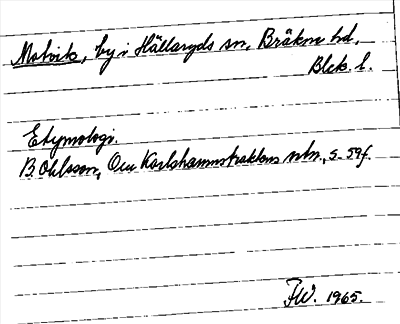 Matvik, by i Hällaryds sn, Bräkne hd,
Blek. l.
Etymologi.
B. Ohlsson, Om Karlshamnstraktens nbn, s. 59 f.
FW. 1965.